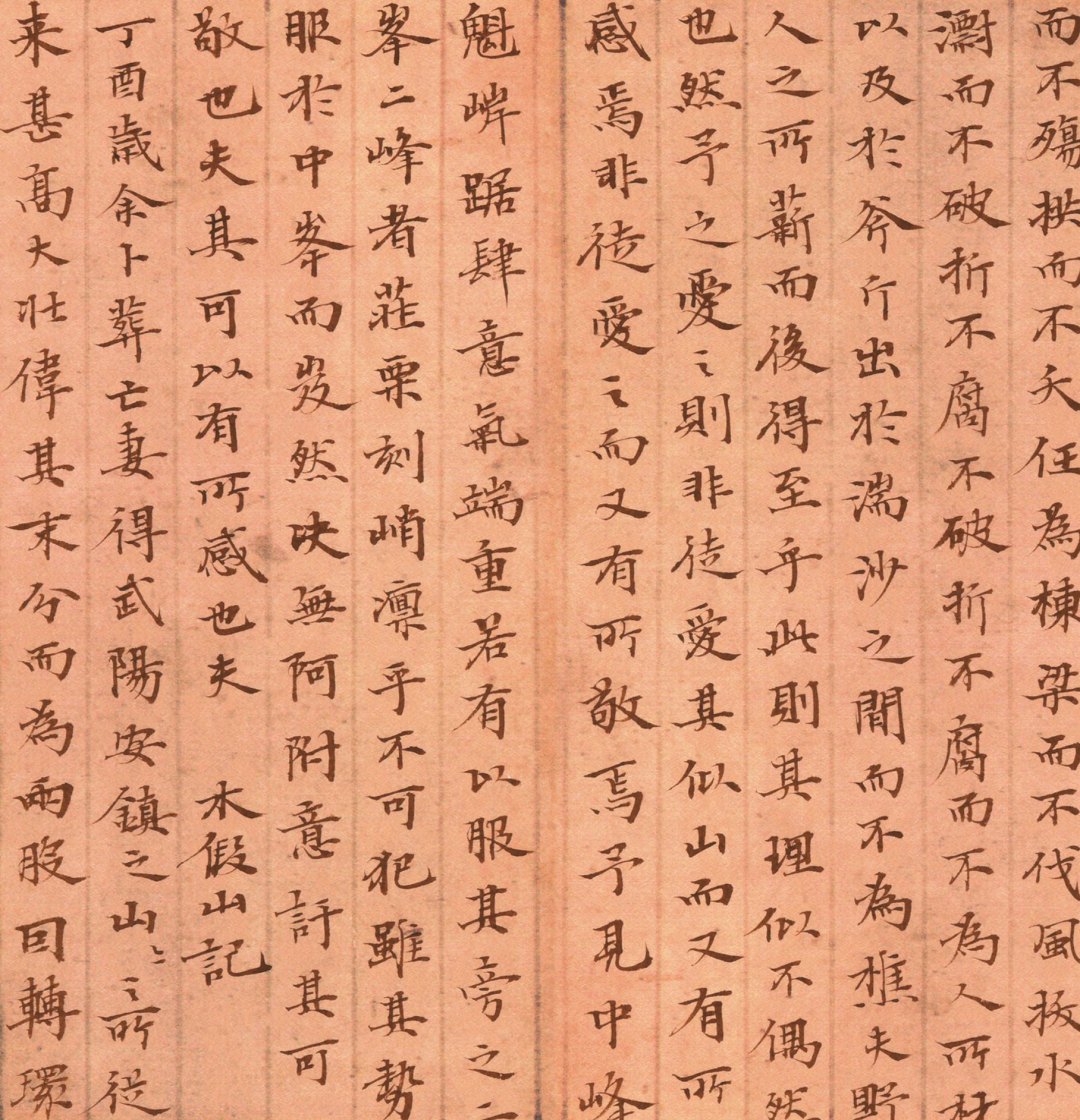 而不殤拱而不夭任為棟梁而不伐風拔水
而不破折不腐不破折不腐而不為人所材
以及於斧斤出於湍沙之間而不為樵夫野
人之所薪而後得至乎此則其理似不偶然
也然予之愛之則非徒愛其似山而又有所
感焉非徒愛之而又有所敬焉予見中峰
魁岸踞肆意氣端重若有以服其旁之二
峯二峰者莊栗刻峭凛乎不可犯雖其勢
服於中峯而岌然决無阿附意訏其可
敬也夫其可以有所感也夫 木假山記
丁酉歲余卜葬亡妻得武陽安鎮之山〻之所從
来甚高大壯偉其末分而為兩股回轉環